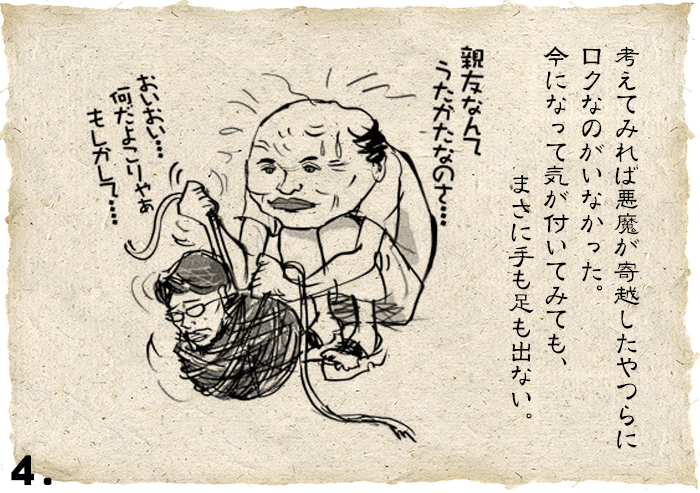 考えてみれば悪魔が寄越したやつらに
ロクなのがいなかった。
今になって気が付いてみても、
まさに手も足も出ない。
親友なんて
うたかたなのさ…
おいおい…
何だよこりゃあ
もしかして…
4.